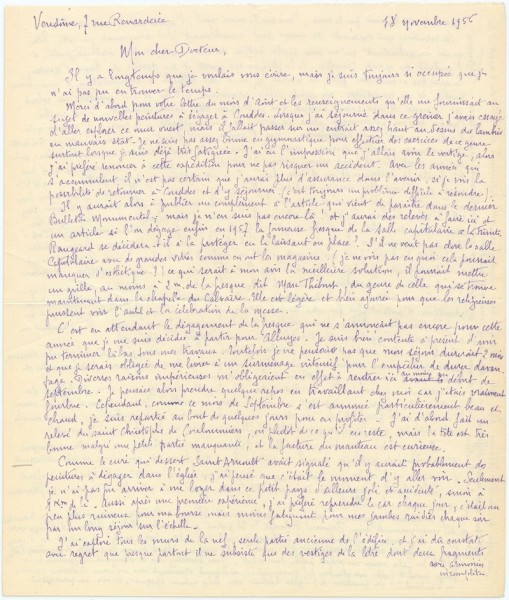 Vendôme, 7 rue Renarderie
18 novembre 1956
Mon cher Docteur,
Il y a longtemps que je voulais vous écrire, mais je suis toujours si occupée que je
n'ai pas pu en trouver le temps.
Merci d'abord pour votre lettre du mois d'Août et les renseignements qu'elle me fournissait au
sujet de nouvelles peintures à dégager à Souday. Lorsque j'ai séjourné dans ce grenier j'avais essayé
d'aller explorer ce mur ouest, mais il fallait passer sur un entrait assez haut au-dessus du lambris
en mauvais état. Je ne suis pas assez bonne en gymnastique pour effectuer des exercices de ce genre
surtout lorsque je suis déjà très fatiguée. J'ai eu l'impression que j'allais avoir le vertige, alors
j'ai préféré renoncer à cette expédition pour ne pas risquer un accident. Avec les années qui
s'accumulent il n'est pas certain que j'aurai plus d'assurance dans l'avenir, si je vois la
possibilité de retourner à Souday et d'y séjourner (c'est toujours un problème difficile à résoudre).
Il y aurait alors à publier un complément à l'article qui vient de paraître dans le dernier
Bulletin Monumental; mais je n'en suis pas encore là! et j'aurai des relevés à faire ici et
un article si l'on dégage enfin en 1957 la fameuse fresque de la salle capitulaire de la Trinité.
Rangeard se décidera-t-il à la protéger en la laissant en place? Il ne veut pas dore la salle
Capitulaire avec de grandes vitres comme en ont les magasins; (je ne vois pas en quoi cela pourrait
manquer d'esthétique!) ce qui serait à mon avis la meilleure solution, il pourrait mettre
une grille, au moins à 2 m. de la fresque dit Marc Thibout, du genre de celle qui se trouve
maintenant dans la chapelle du Calvaire. Elle est légère et bien ajourée pour que les religieuses
puissent voir l'autel et la célébration de la messe.
C'est en attendant le dégagement de la fresque qui ne s'annonçait pas encore pour cette
année que je me suis décidée à partir pour Alluyes. Je suis bien contente à présent d'avoir
pu terminer là-bas tous mes travaux. Toutefois je ne pensais pas que mon séjour durerait 2 mois
et que je serais obligée de me livrer à un surmenage intensif pour l'empêcher de durer davan-
tage. Diverses raisons impérieuses m'obligeaient en effet à rentrer ici au moins au début de
septembre. Je pensais alors prendre quelque repos en travaillant chez moi car j'étais vraiment
fourbue. Cependant, comme ce mois de Septembre s'est annoncé particulièrement beau et
chaud, je suis repartie au bout de quelques jours pour en profiter. J'ai d'abord fait un
relevé du saint Christophe de Coulommiers, ou plutôt de ce qu'il en reste, mais la tête est très
bonne malgré une petite partie manquante, et la facture du manteau est curieuse.
Comme le curé qui dessert Saint Arnoult avait signalé qu'il y aurait probablement des
peintures à dégager dans l'église, j'ai pensé que c'était le moment d'y aller voir. Seulement
je n'ai pas pu arriver à me loger dans ce petit pays d'ailleurs joli et accidenté, sinon à
4 km de là. Aussi après une première expérience, j'ai préféré reprendre le car chaque jour; c'était un
peu plus ruineux pour ma bourse mais moins fatiguant pour mes jambes raidies chaque soir
par un long séjour sur l'échelle.
J'ai exploré tous les murs de la nef, seule partie ancienne de l'édifice, et j'ai dû constater
avec regret que presque partout il ne subsistait que des vestiges de la litre dont deux fragments
avec armoiries
incomplètes